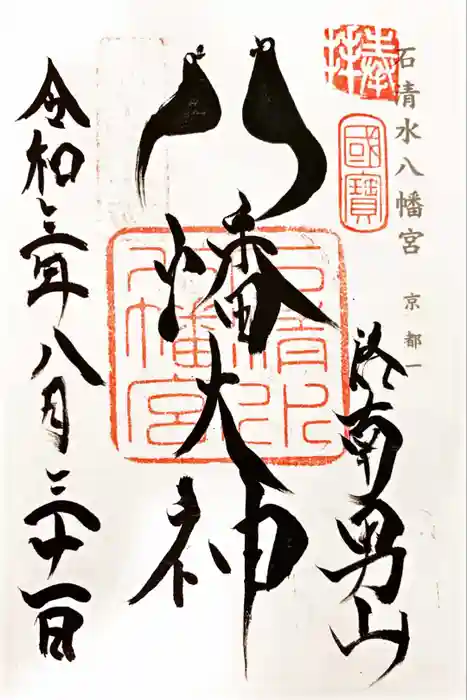 奉拝
石清水八幡宮 京都一
國寶
洛南男山
八幡大神
石清水八幡宮
令和三年八月三十一日